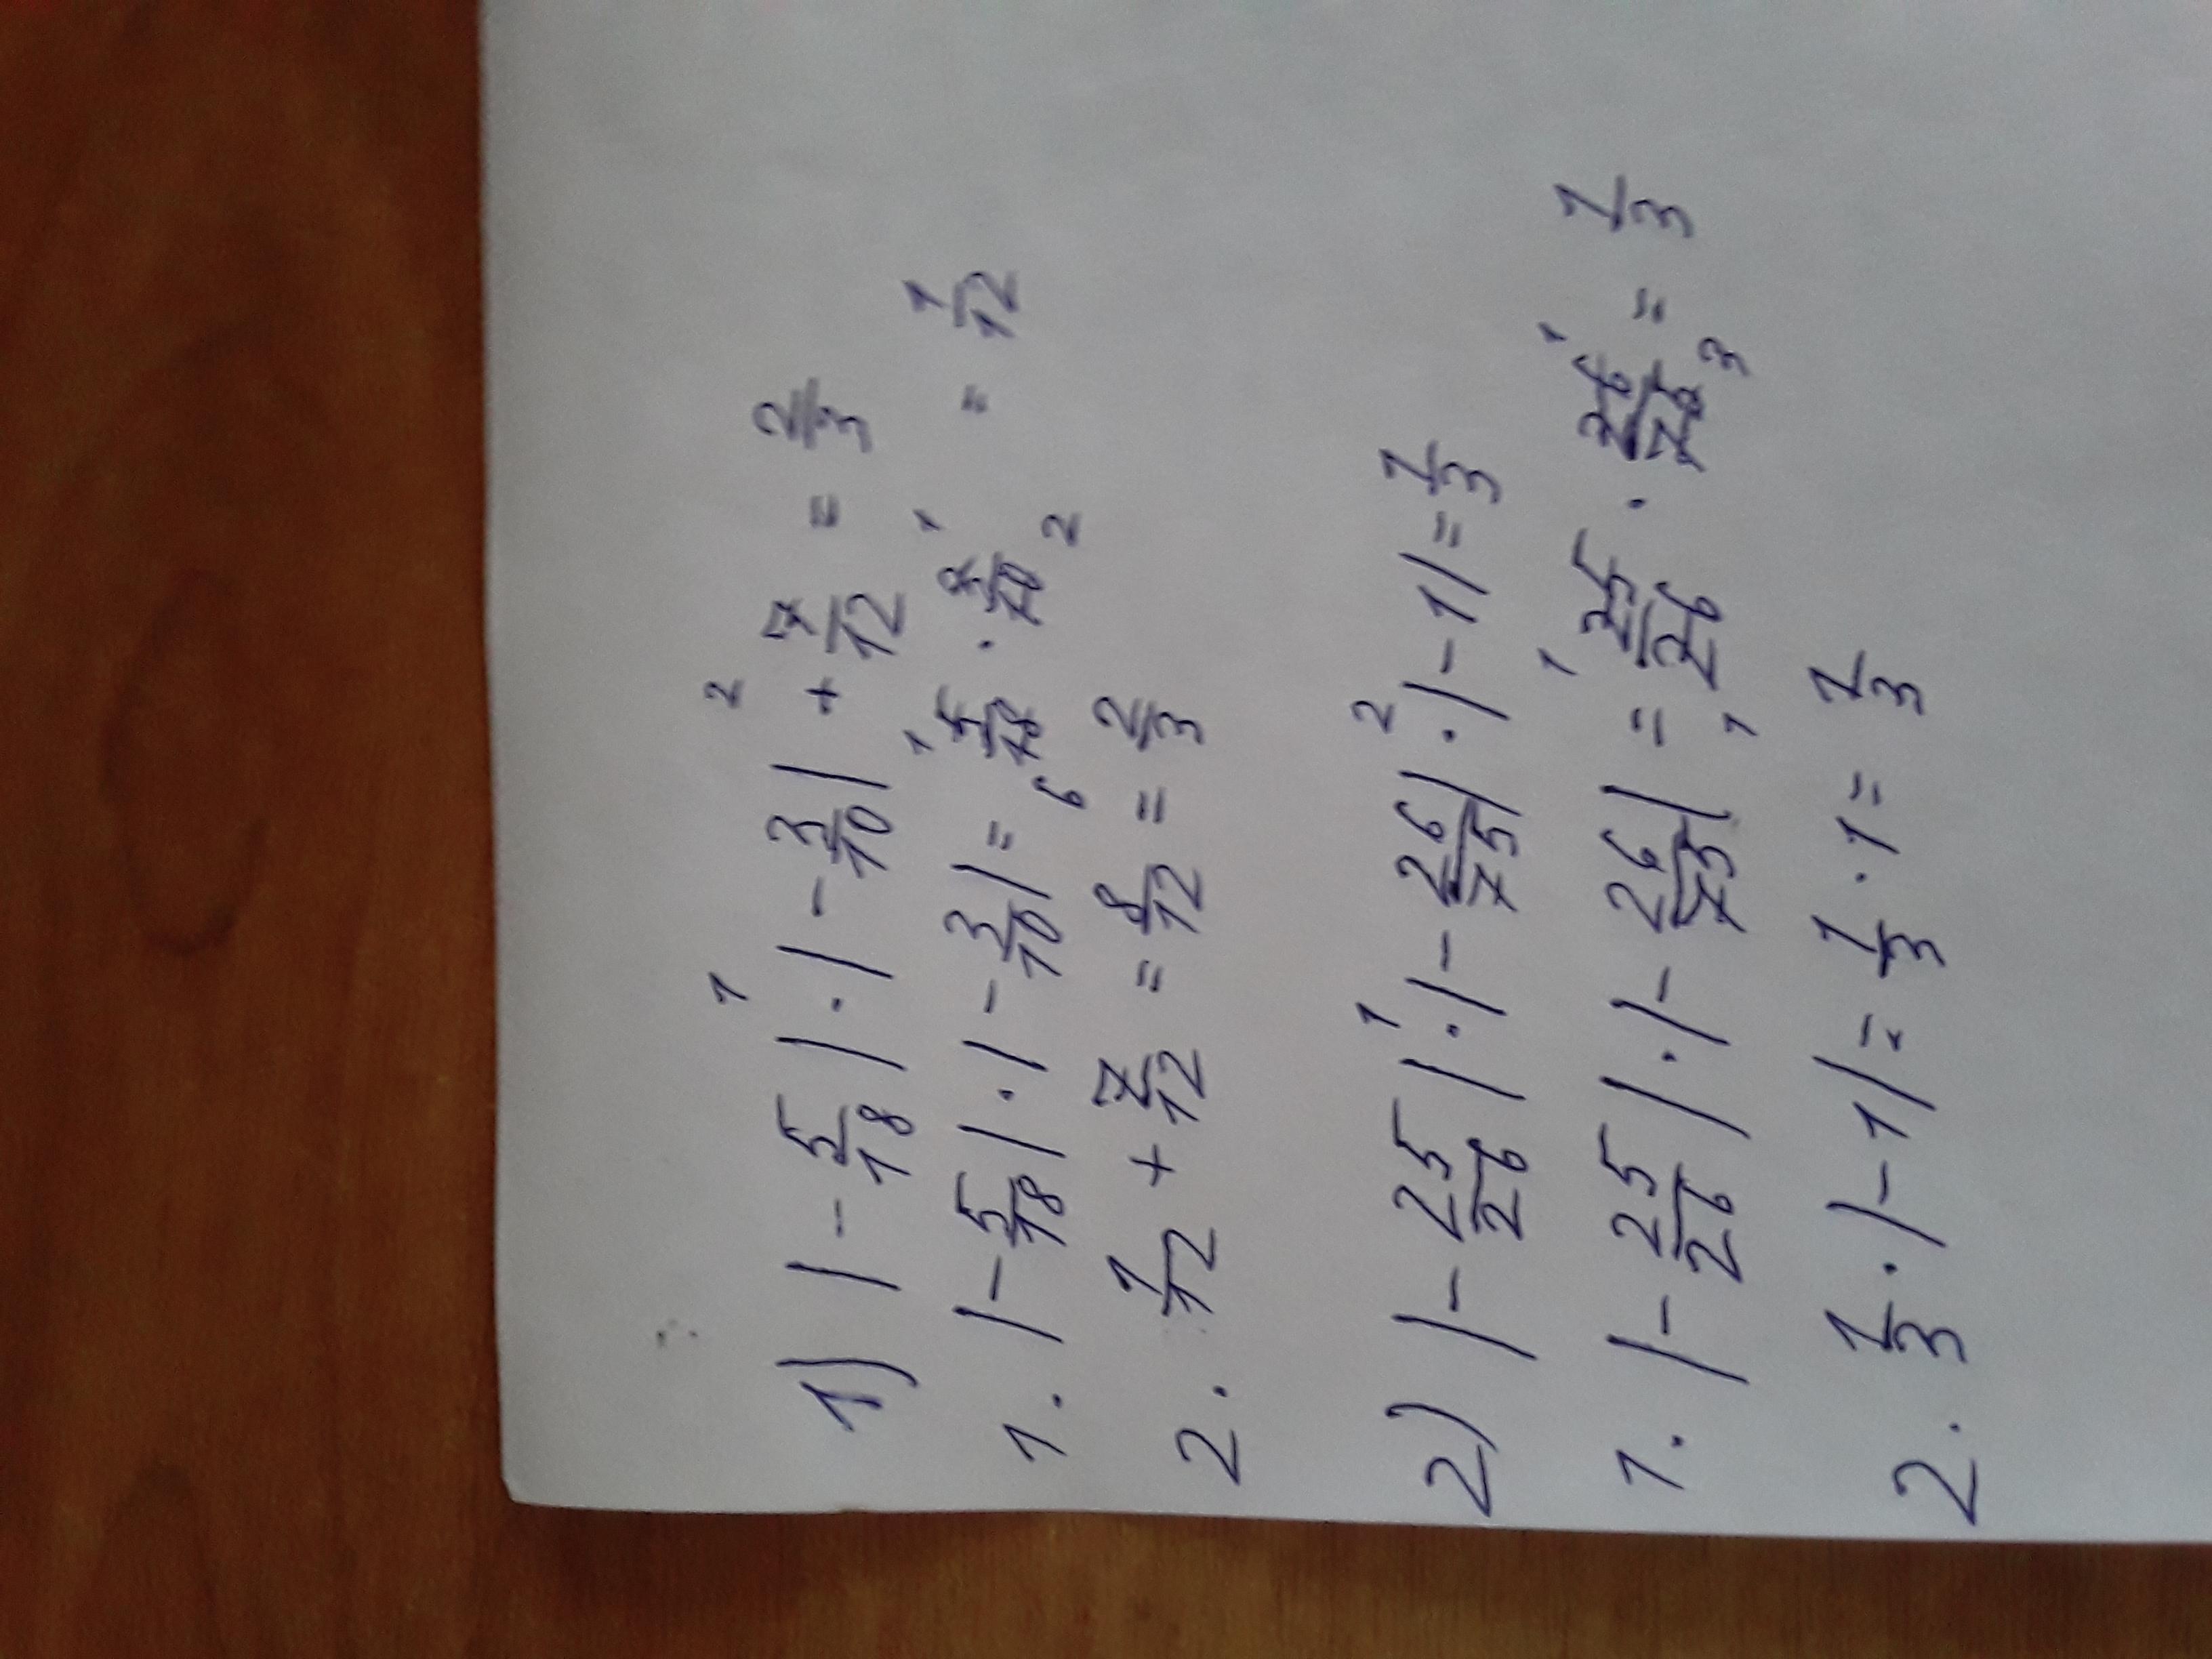 1) |-5/18| · |-3/10| + 7/12 = 2/3
1. |-5/18| · |-3/10| = 5/18 · 3/10 = 1/12
2. 1/12 + 7/12 = 8/12 = 2/3
2) |-25/26| · |-26/75| · |-1| = 1/3
1. |-25/26| · |-26/75| = 25/26 · 26/75 = 1/3
2. 1/3 · |-1| = 1/3 · 1 = 1/3